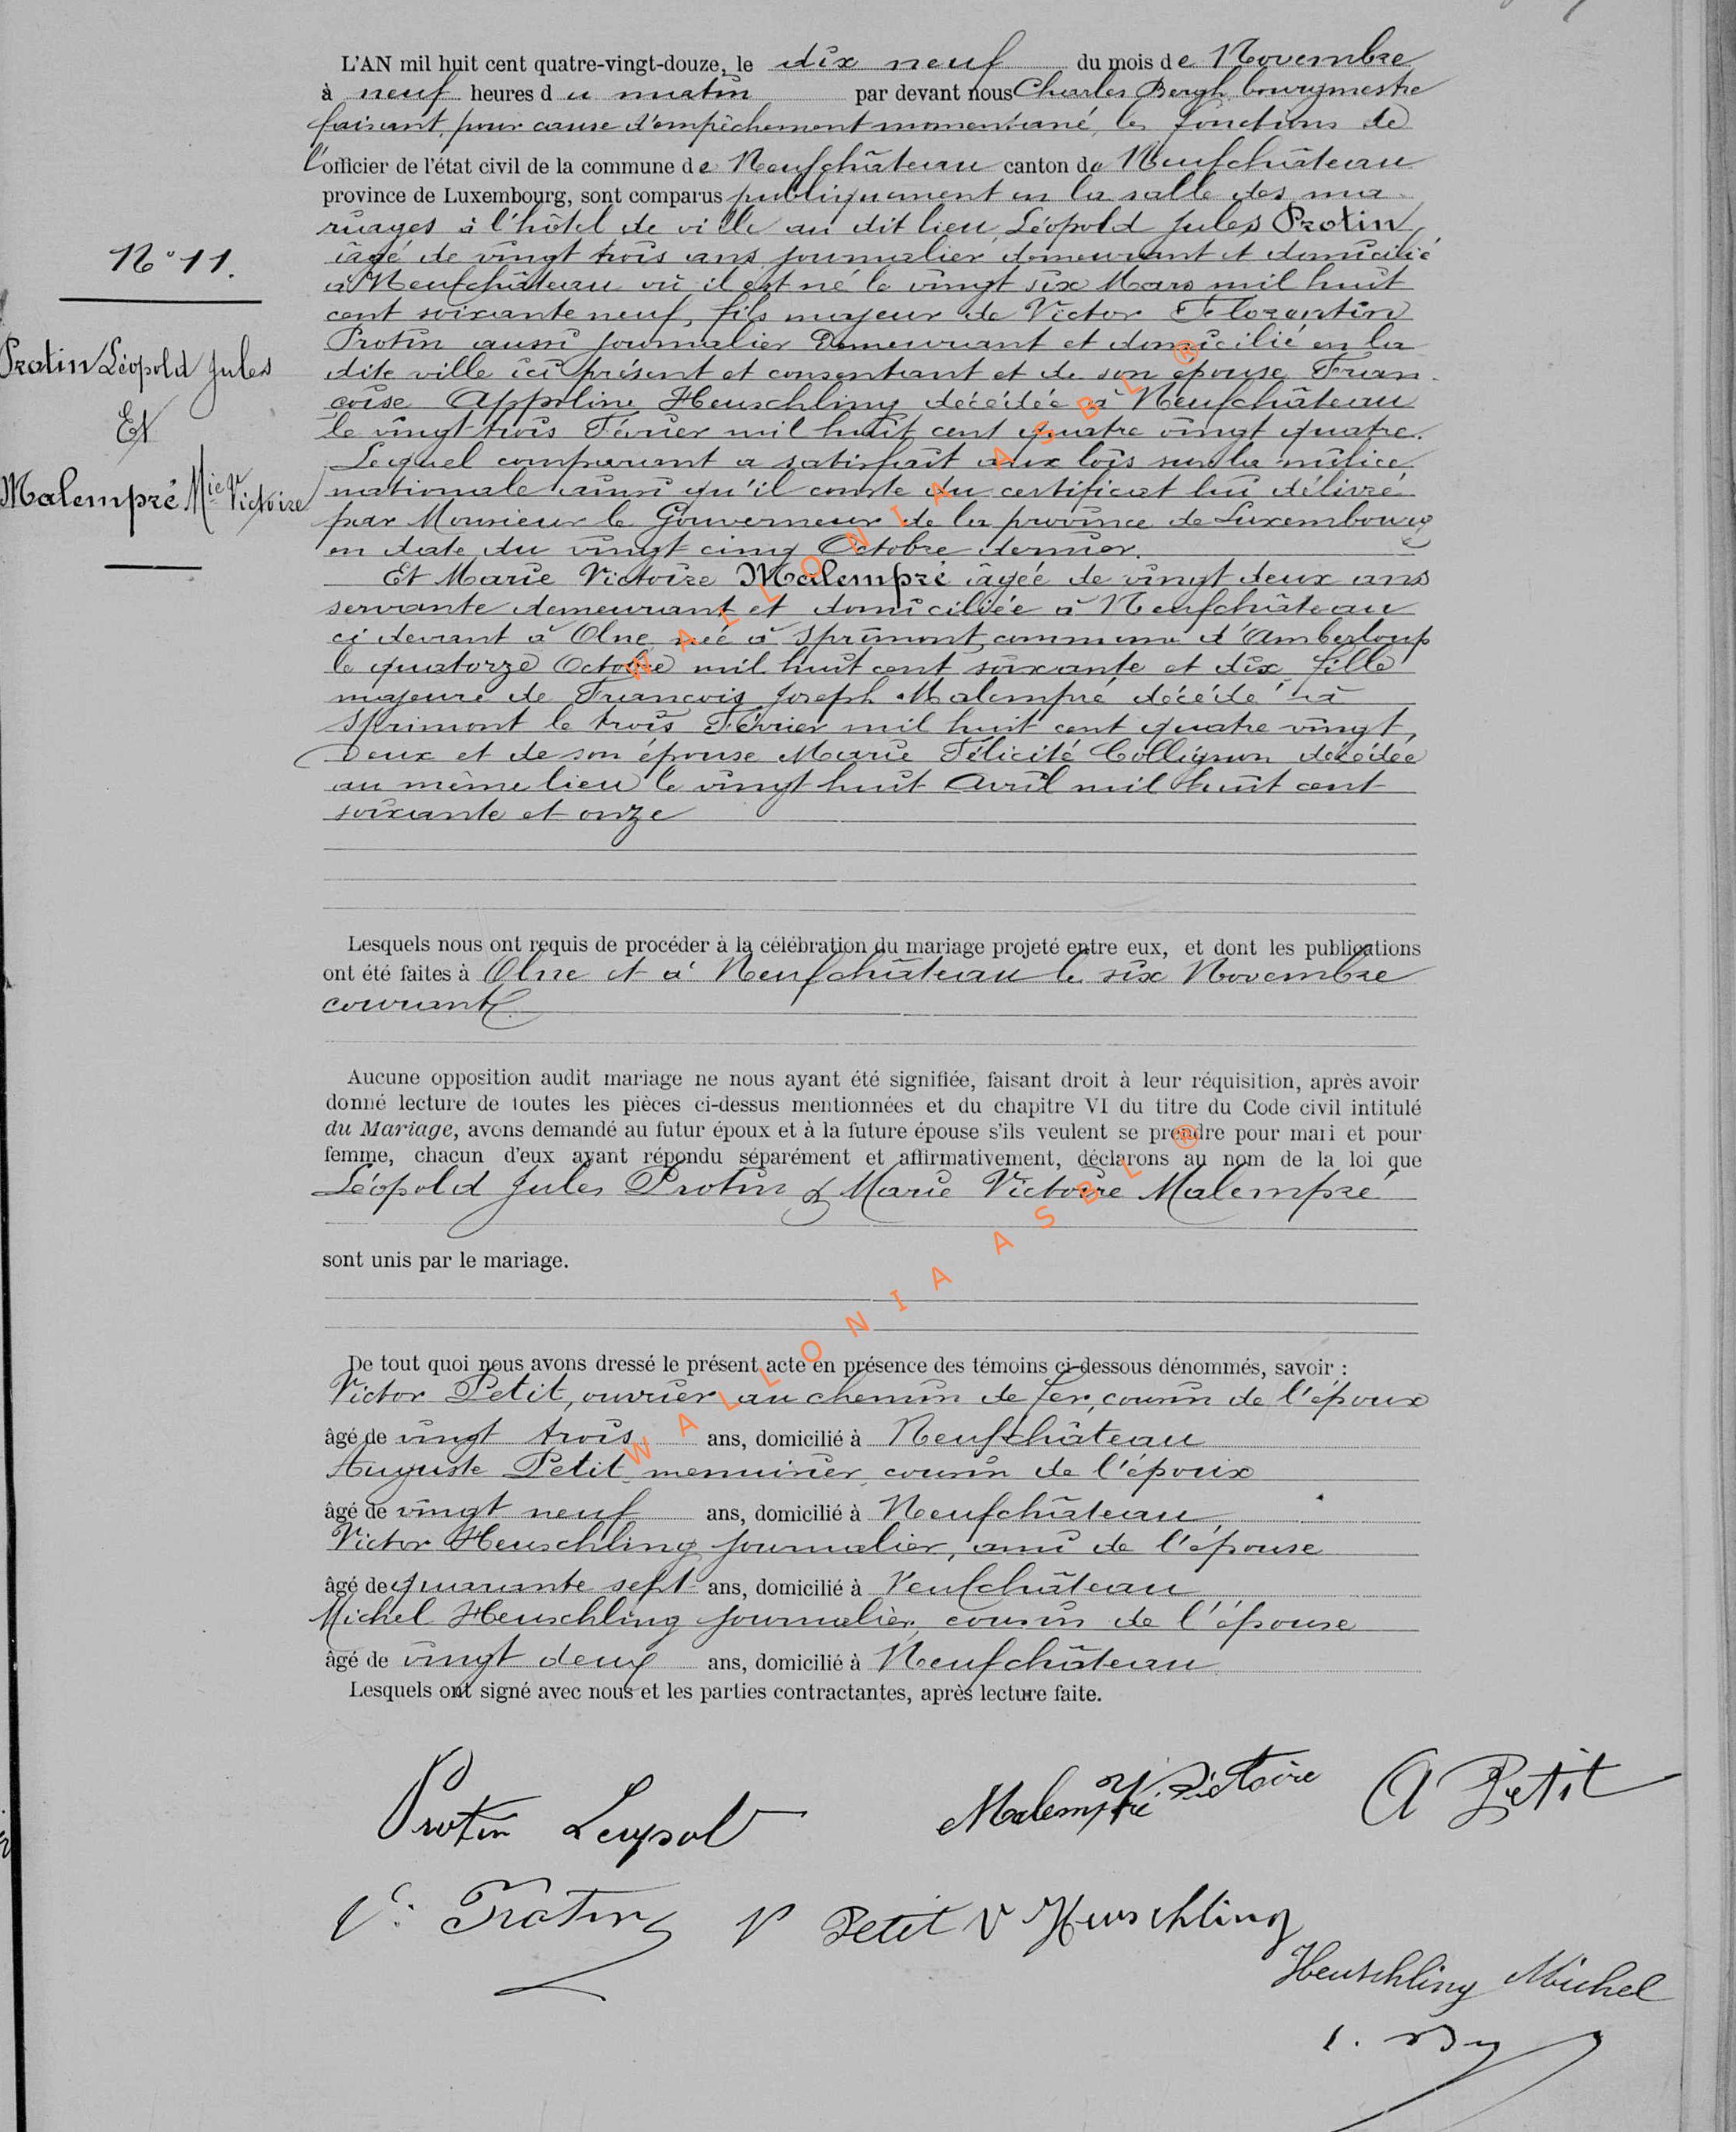 L'AN mil huit cent quatre-vingt-douze, le dix neuf du mois de Novembre
à neuf heures du matin par devant nous Charles Bergh, bourgmestre
faisant, pour cause d'empêchement momentané, les fonctions de
l'officier de l'état civil de la commune de Neufchâteau canton de Neufchâteau
province de Luxembourg, sont comparus publiquement en la salle des ma
riages à l'hôtel de ville au dit lieu, Léopold Jules Protin
âgé de vingt trois ans, journalier demeurant et domicilié
à Neufchâteau où il est né le vingt six Mars mil huit
cent soixante neuf, fils majeur de Victor Florentin
Protin aussi journalier demeurant et domicilié en la
dite ville ici présent et consentant et de son épouse Fran
çoise Appoline Heuschling décédée à Neufchâteau
le vingt trois Février mil huit cent quatre vingt quatre.
Lequel comparant a satisfait aux lois sur la milice
nationale ainsi qu'il conste du certificat lui délivré
par Monsieur le Gouverneur de la province de Luxembourg
en date du vingt cinq Octobre dernier.
Et Marie Victoire Malempré âgée de vingt deux ans
servante demeurant et domiciliée à Neufchâteau
ci devant à Olne, née à Sprimont, commune d'Amberloup
le quatorze Octobre mil huit cent soixante et dix, fille
majeure de François Joseph Malempré décédé à
Sprimont le trois Février mil huit cent quatre vingt
deux et de son épouse Marie Félicité Collignon décédée
au même lieu le vingt huit Avril mil huit cent
soixante et onze
N° 11.
Protin Léopold Jules
Et
Malempré Mie Vctoire
Lesquels nous ont requis de procéder à la célébration du mariage projeté entre eux, et dont les publications
ont été faites à Olne et à Neufchâteau le six Novembre
courant.
Aucune opposition audit mariage ne nous ayant été signifiée, faisant droit à leur réquisition, après avoir
donné lecture de toutes les pièces ci-dessus mentionnées et du chapitre VI du titre du Code civil intitulé
du Mariage, avons demandé au futur époux et à la future épouse s'ils veulent se prendre pour mari et pour
femme, chacun d'eux ayant répondu séparément et affirmativement, déclarons au nom de la loi que
Léopold Jules Protin & Marie Victoire Malempré
sont unis par le mariage.
De tout quoi nous avons dressé le présent acte en présence des témoins ci-dessous dénommés, savoir :
Victor Petit, ouvrier au chemin de fer, cousin de l'époux
âgé de vingt trois ans, domicilié à Neufchâteau
Auguste Petit menuisier, cousin de l'époux
âgé de vingt neuf ans, domicilié à Neufchâteau,
Victor Heuschling journalier, ami de l'épouse
âgé de quarante sept ans, domicilié à Neufchâteau
Michel Heuschling journalier, cousin de l'épouse
âgé de vingt deux ans, domicilié à Neufchâteau
Lesquels ont signé avec nous et les parties contractantes, après lecture faite.
Protin Leopol Malempré Victoire A Petit
Vc: Protin V Petit V Heuschling
Heuschling Michel
WALLONIA ASBL ®
WALLONIA ASBL ®